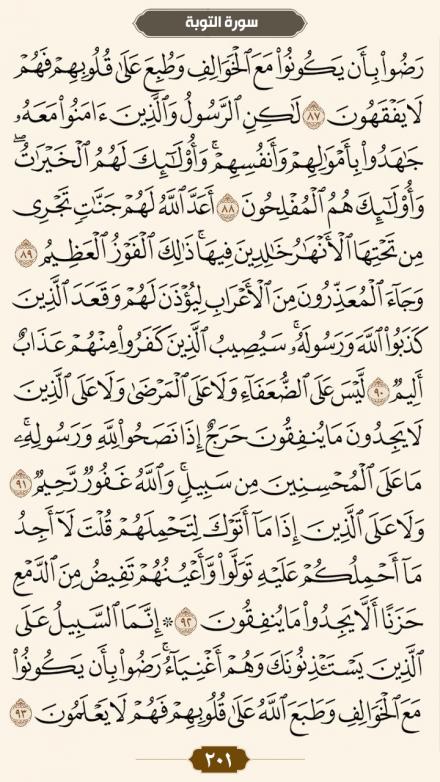 سورة التوبة
رَضُوا۟ بِأَن يَكُونُوا۟ مَعَ ٱلْخَوَالِفِ وَطُبِعَ عَلَىٰ قُلُوبِهِمْ فَهُمْ
لَا يَفْقَهُونَ ٨٧ لَٰكِنِ ٱلرَّسُولُ وَٱلَّذِينَ ءَامَنُوا۟ مَعَهُۥ
جَٰهَدُوا۟ بِأَمْوَٰلِهِمْ وَأَنفُسِهِمْ ۚ وَأُو۟لَٰٓئِكَ لَهُمُ ٱلْخَيْرَٰتُ ۖ
وَأُو۟لَٰٓئِكَ هُمُ ٱلْمُفْلِحُونَ ٨٨ أَعَدَّ ٱللَّهُ لَهُمْ جَنَّٰتٍ تَجْرِى
مِن تَحْتِهَا ٱلْأَنْهَٰرُ خَٰلِدِينَ فِيهَا ۚ ذَٰلِكَ ٱلْفَوْزُ ٱلْعَظِيمُ ٨٩
وَجَآءَ ٱلْمُعَذِّرُونَ مِنَ ٱلْأَعْرَابِ لِيُؤْذَنَ لَهُمْ وَقَعَدَ ٱلَّذِينَ
كَذَبُوا۟ ٱللَّهَ وَرَسُولَهُۥ ۚ سَيُصِيبُ ٱلَّذِينَ كَفَرُوا۟ مِنْهُمْ عَذَابٌ
أَلِيمٌ ٩٠ لَّيْسَ عَلَى ٱلضُّعَفَآءِ وَلَا عَلَى ٱلْمَرْضَىٰ وَلَا عَلَى ٱلَّذِينَ
لَا يَجِدُونَ مَا يُنفِقُونَ حَرَجٌ إِذَا نَصَحُوا۟ لِلَّهِ وَرَسُولِهِۦ ۚ
مَا عَلَى ٱلْمُحْسِنِينَ مِن سَبِيلٍ ۚ وَٱللَّهُ غَفُورٌ رَّحِيمٌ ٩١
وَلَا عَلَى ٱلَّذِينَ إِذَا مَآ أَتَوْكَ لِتَحْمِلَهُمْ قُلْتَ لَآ أَجِدُ
مَآ أَحْمِلُكُمْ عَلَيْهِ تَوَلَّوا۟ وَّأَعْيُنُهُمْ تَفِيضُ مِنَ ٱلدَّمْعِ
حَزَنًا أَلَّا يَجِدُوا۟ مَا يُنفِقُونَ ٩٢ ۞ إِنَّمَا ٱلسَّبِيلُ عَلَى
ٱلَّذِينَ يَسْتَـْٔذِنُونَكَ وَهُمْ أَغْنِيَآءُ ۚ رَضُوا۟ بِأَن يَكُونُوا۟
مَعَ ٱلْخَوَالِفِ وَطَبَعَ ٱللَّهُ عَلَىٰ قُلُوبِهِمْ فَهُمْ لَا يَعْلَمُونَ ٩٣
٢٠١